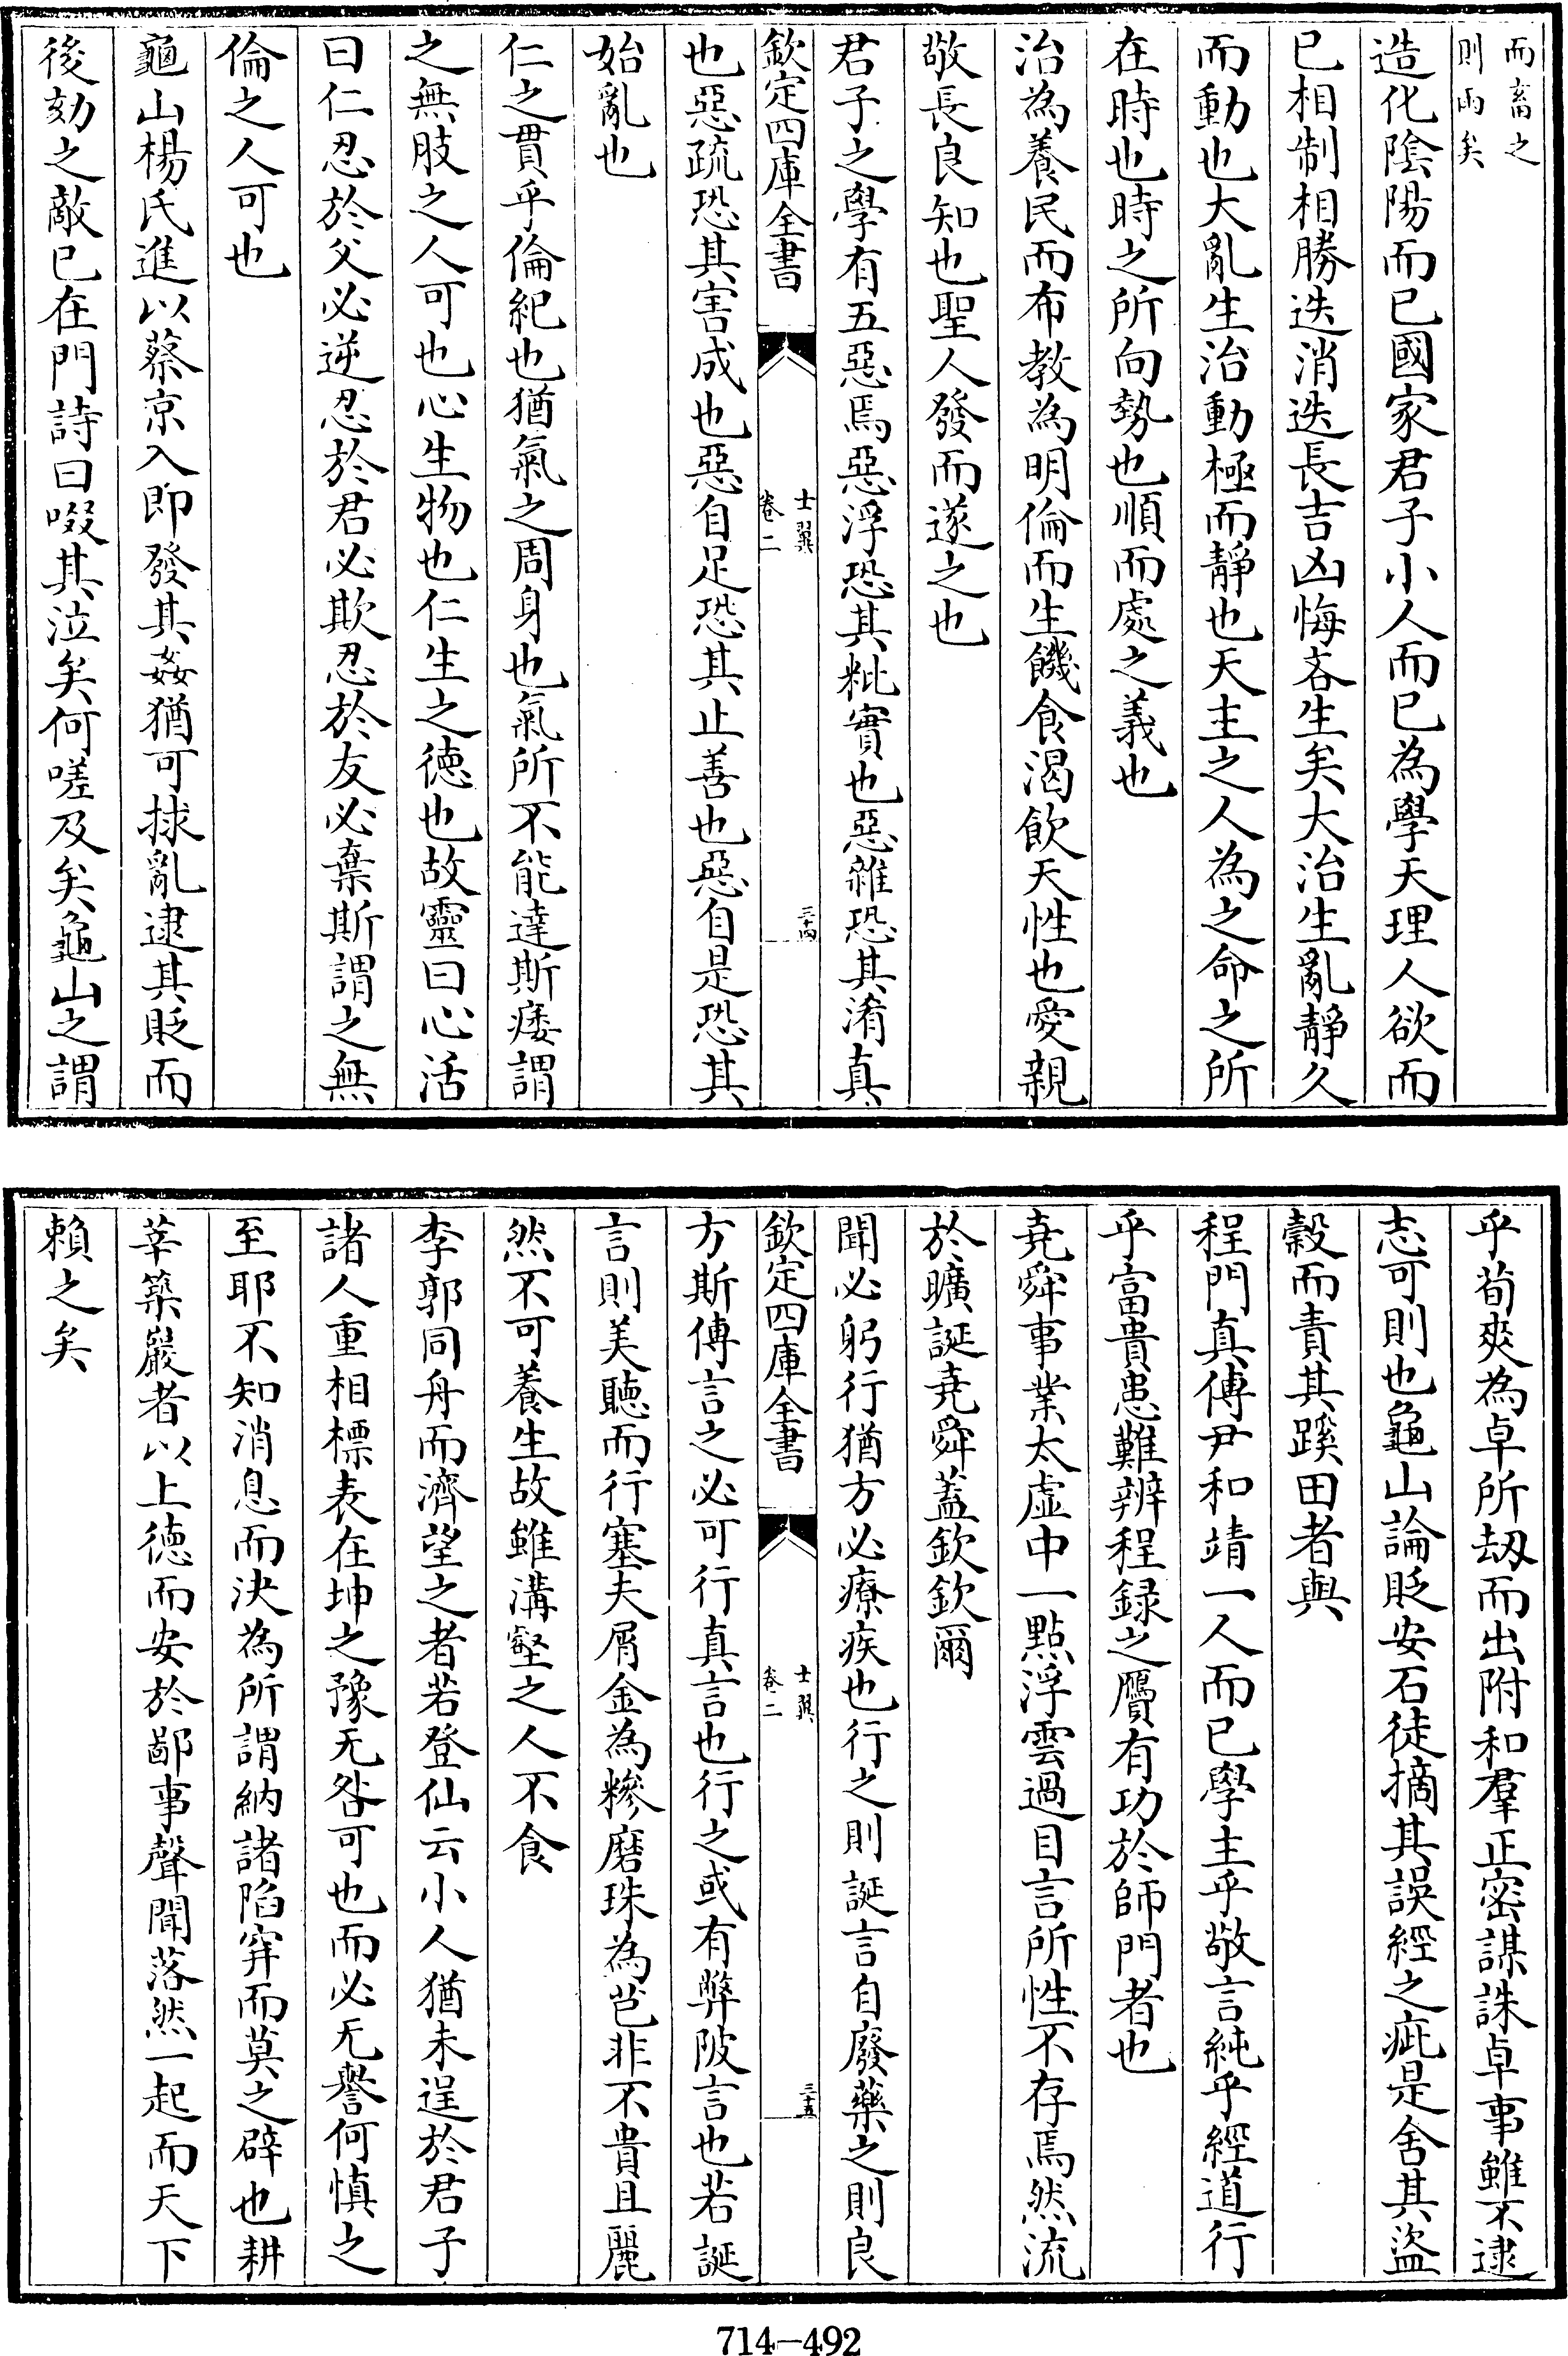 而畜之
則雨矣
造化陰陽而已國家君子小人而已為學天理人欲而
已相制相勝迭消迭長吉凶悔吝生矣大治生亂靜久
而動也大亂生治動極而靜也天主之人為之命之所
在時也時之所向勢也順而處之義也
治為養民而布教為明倫而生饑食渴飲天性也愛親
敬長良知也聖人發而遂之也
君子之學有五惡焉惡浮恐其粃實也惡雜恐其淆真
欽定四庫全書
士翼
卷二
三十四
也惡疏恐其害成也惡自足恐其止善也惡自是恐其
始亂也
仁之貫乎倫紀也猶氣之周身也氣所不能達斯痿謂
之無肢之人可也心生物也仁生之德也故靈曰心活
曰仁忍於父必逆忍於君必欺忍於友必棄斯謂之無
倫之人可也
龜山楊氏進以蔡京入即發其姦猶可捄亂逮其貶而
後劾之敵已在門詩曰啜其泣矣何嗟及矣龜山之謂
乎荀爽為卓所刼而出附和羣正密謀誅卓事雖不逮
志可則也龜山論貶安石徒摘其誤經之疵是舍其盜
糓而責其蹊田者與
程門真傳尹和靖一人而已學主乎敬言純乎經道行
乎富貴患難辨程録之贗有功於師門者也
堯舜事業太虛中一點浮雲過目言所性不存焉然流
於曠誕堯舜蓋欽欽爾
聞必躬行猶方必療疾也行之則誕言自廢藥之則良
欽定四庫全書
士翼
卷二
三十五
方斯傳言之必可行真言也行之或有弊陂言也若誕
言則美聽而行塞夫屑金為糝磨珠為芑非不貴且麗
然不可養生故雖溝壑之人不食
李郭同舟而濟望之者若登仙云小人猶未逞於君子
諸人重相標表在坤之豫无咎可也而必无譽何慎之
至耶不知消息而決為所謂納諸陷穽而莫之辟也耕
莘築巖者以上德而安於鄙事聲聞落然一起而天下
賴之矣
714-492